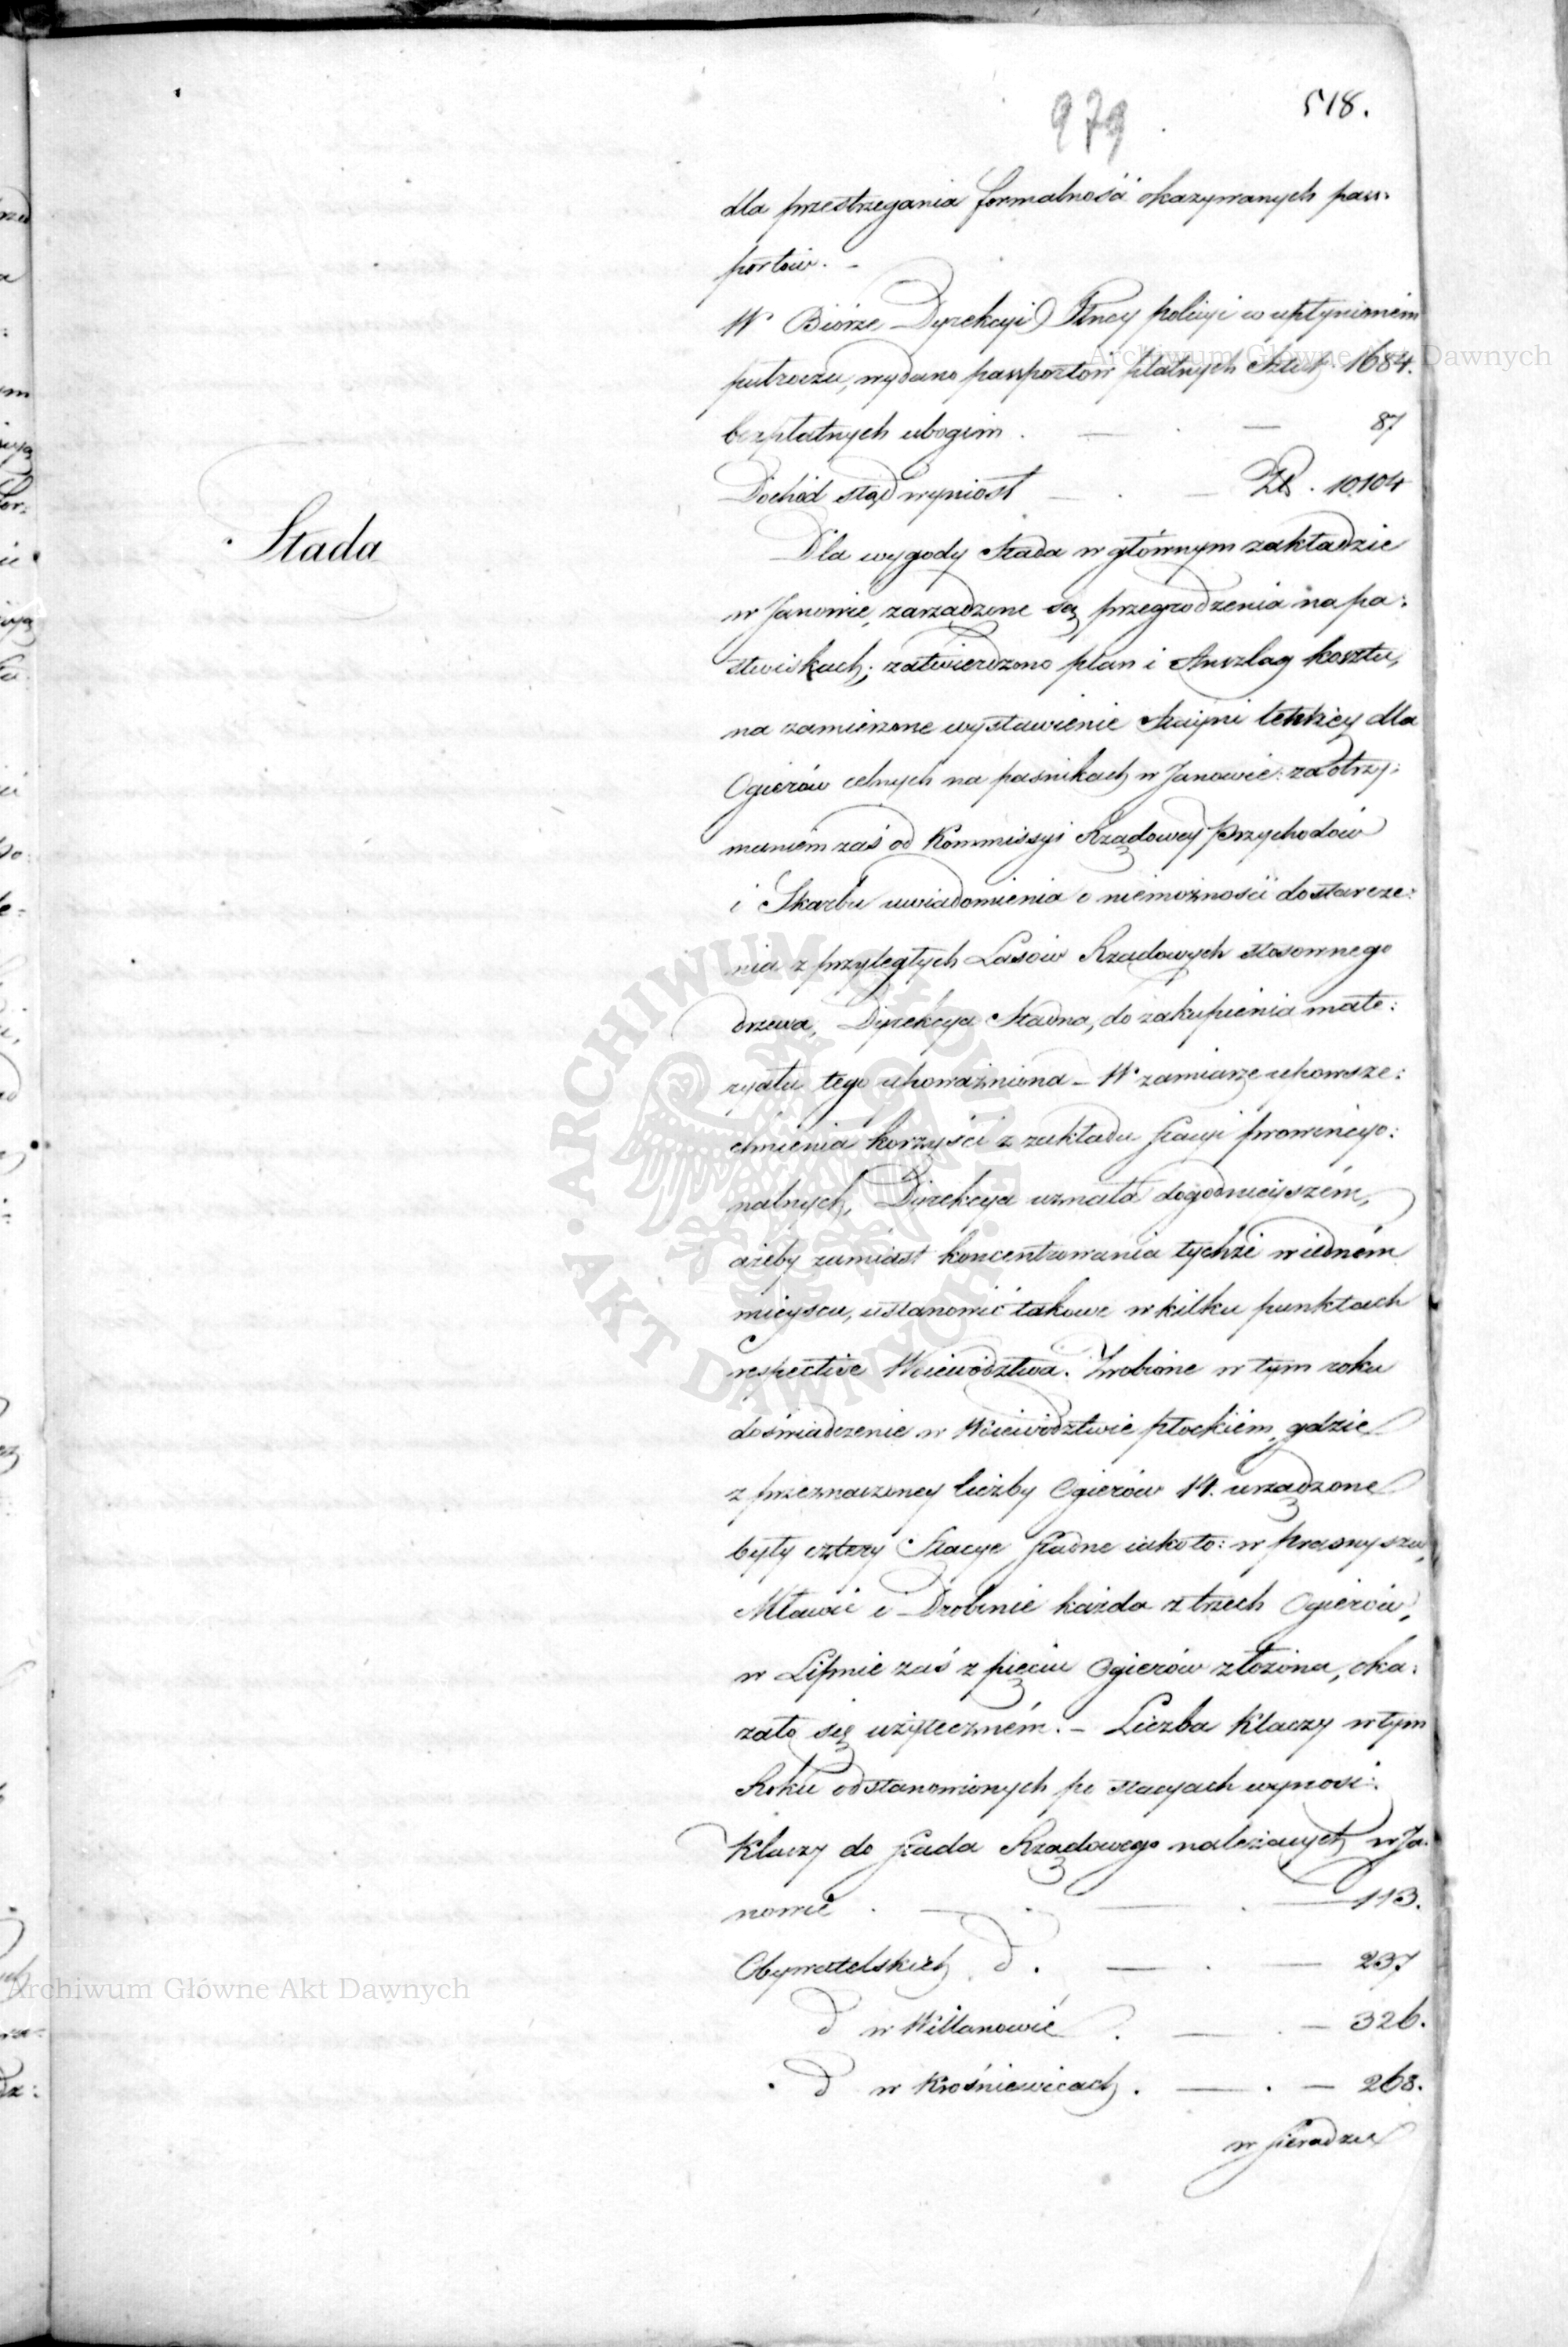 979
518.
dla przestrzegania formalność okazywanych pasz:
portów. -
W Biórze Dyrekcyi policyi w upłynionem
pułroczu, wydano paszportów płatnych Sztuk 1684.
bezpłatnych ubogim . — . — 87
Dochód stąd wyniosł — . — Zł. 10104
Stada
Dla wygody Stada w głównym zakładzie
w Janowie, zarządzone są przegrodzenia na pa:
stwiskach; zatwierdzono plan i Anszlag kosztu,
na zamierzone wystawienie Stayni letkiey dla
Ogierów celnych na pasnikach w Janowie: za otrzy:
maniem zaś od Kommissyi Rządowey Przychodów
i Skarbu uwiadomienia o niemożności dostarcze:
nia z przyległych Lasów Rządowych stosownego
drzewa, Dyrekcya Stadna, do zakupienia mate:
ryału tego upoważniona - W zamiarze upowsze:
chnienia korzyści z zakładu stacyi prowincyo:
nalnych, Dyrekcya uznała dogodnieyszém,
ażeby zamiast koncentrowania tychże w iedném
mieyscu, ustanowić takowe w kilku punktach
respective Woiewództwa. Zrobione w tym roku
doświadczenie w Woiewództwie płockiém, gdzie
z przeznaczoney liczby Ogierów 14. urządzone
były cztery Stacye stadne iako to: w Prasnyszu,
Mławie i Drobinie każda z trzech Ogierów,
w Lipnie zaś z pięciu Ogierów złożona, oka:
zało się użyteczném. - Liczba Klaczy w tym
Roku odstanowionych po stacyach wynosi:
Klaczy do stada Rządowego należących w Ja:
nowie . — . — . — 113.
Obywatelskich d . — . — 237
d w Willanowie . — . — 326.
d w Krośniewicach . — . — 268.
w Sieradzu
Archiwum Główne Akt Dawnych
Archiwum Główne Akt Dawnych
ARCHIWUM GŁÓWNE AKT DAWNYCH